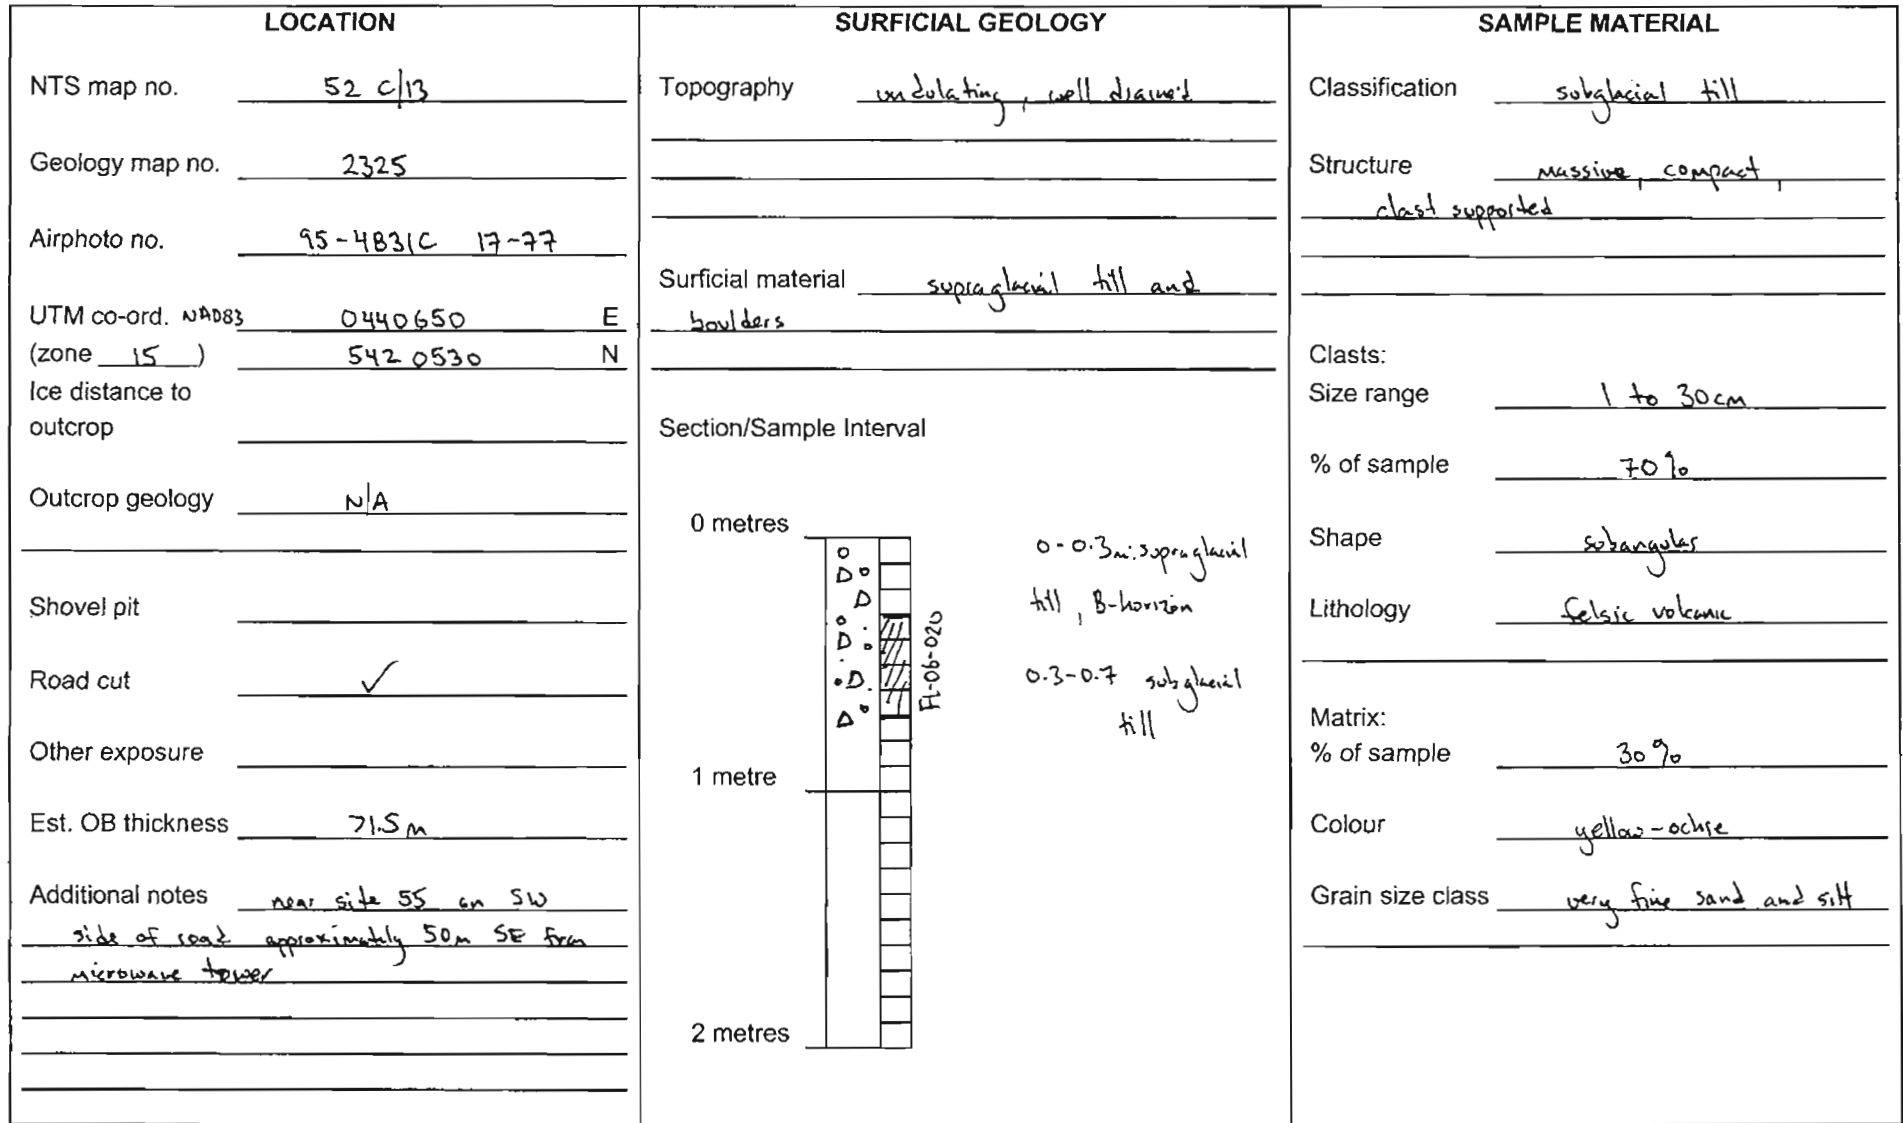 LOCATION
NTS map no. 52 C/13
Geology map no. 2325
Airphoto no. 95-4831C 17-77
UTM co-ord. NAD83 0440650 E
(zone 15) 542 0530 N
Ice distance to
outcrop
Outcrop geology N/A
Shovel pit
Road cut ✓
Other exposure
Est. OB thickness >1.5m
Additional notes near site 55 on SW
side of road approximately 50m SE from
microwave tower
SURFICIAL GEOLOGY
Topography undulating, well drained
Surficial material supraglacial till and
boulders
Section/Sample Interval
0 metres
0-0.3m: supraglacial
till, B-horizon
FL-06-020
0.3-0.7 subglacial
till
1 metre
2 metres
SAMPLE MATERIAL
Classification subglacial till
Structure massive, compact,
clast supported
Clasts:
Size range 1 to 30cm
% of sample 70%
Shape subangular
Lithology felsic volcanic
Matrix:
% of sample 30%
Colour yellow-ochre
Grain size class very fine sand and silt